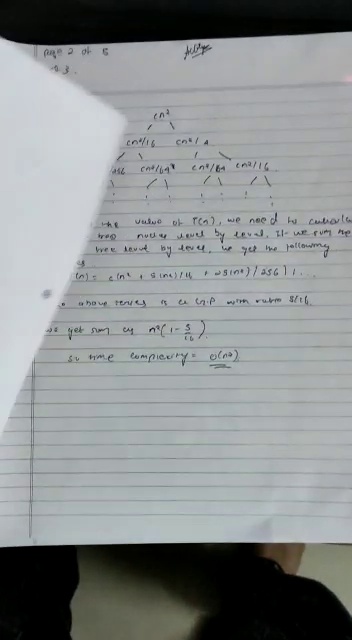 Page 2 of 5
3.
cn²
cn²/16 cn²/4
256 cn²/64 cn²/64 cn²/16
the value of T(n), we need to calculate
tree nodes level by level. If we sum the
tree level by level, we get the following
(n) = c(n² + 5(n²)/16 + 25(n²)/256) + ...
above series is a G.P with ratio 5/16
we get sum as n²(1 - 5/16).
so time complexity = O(n²)